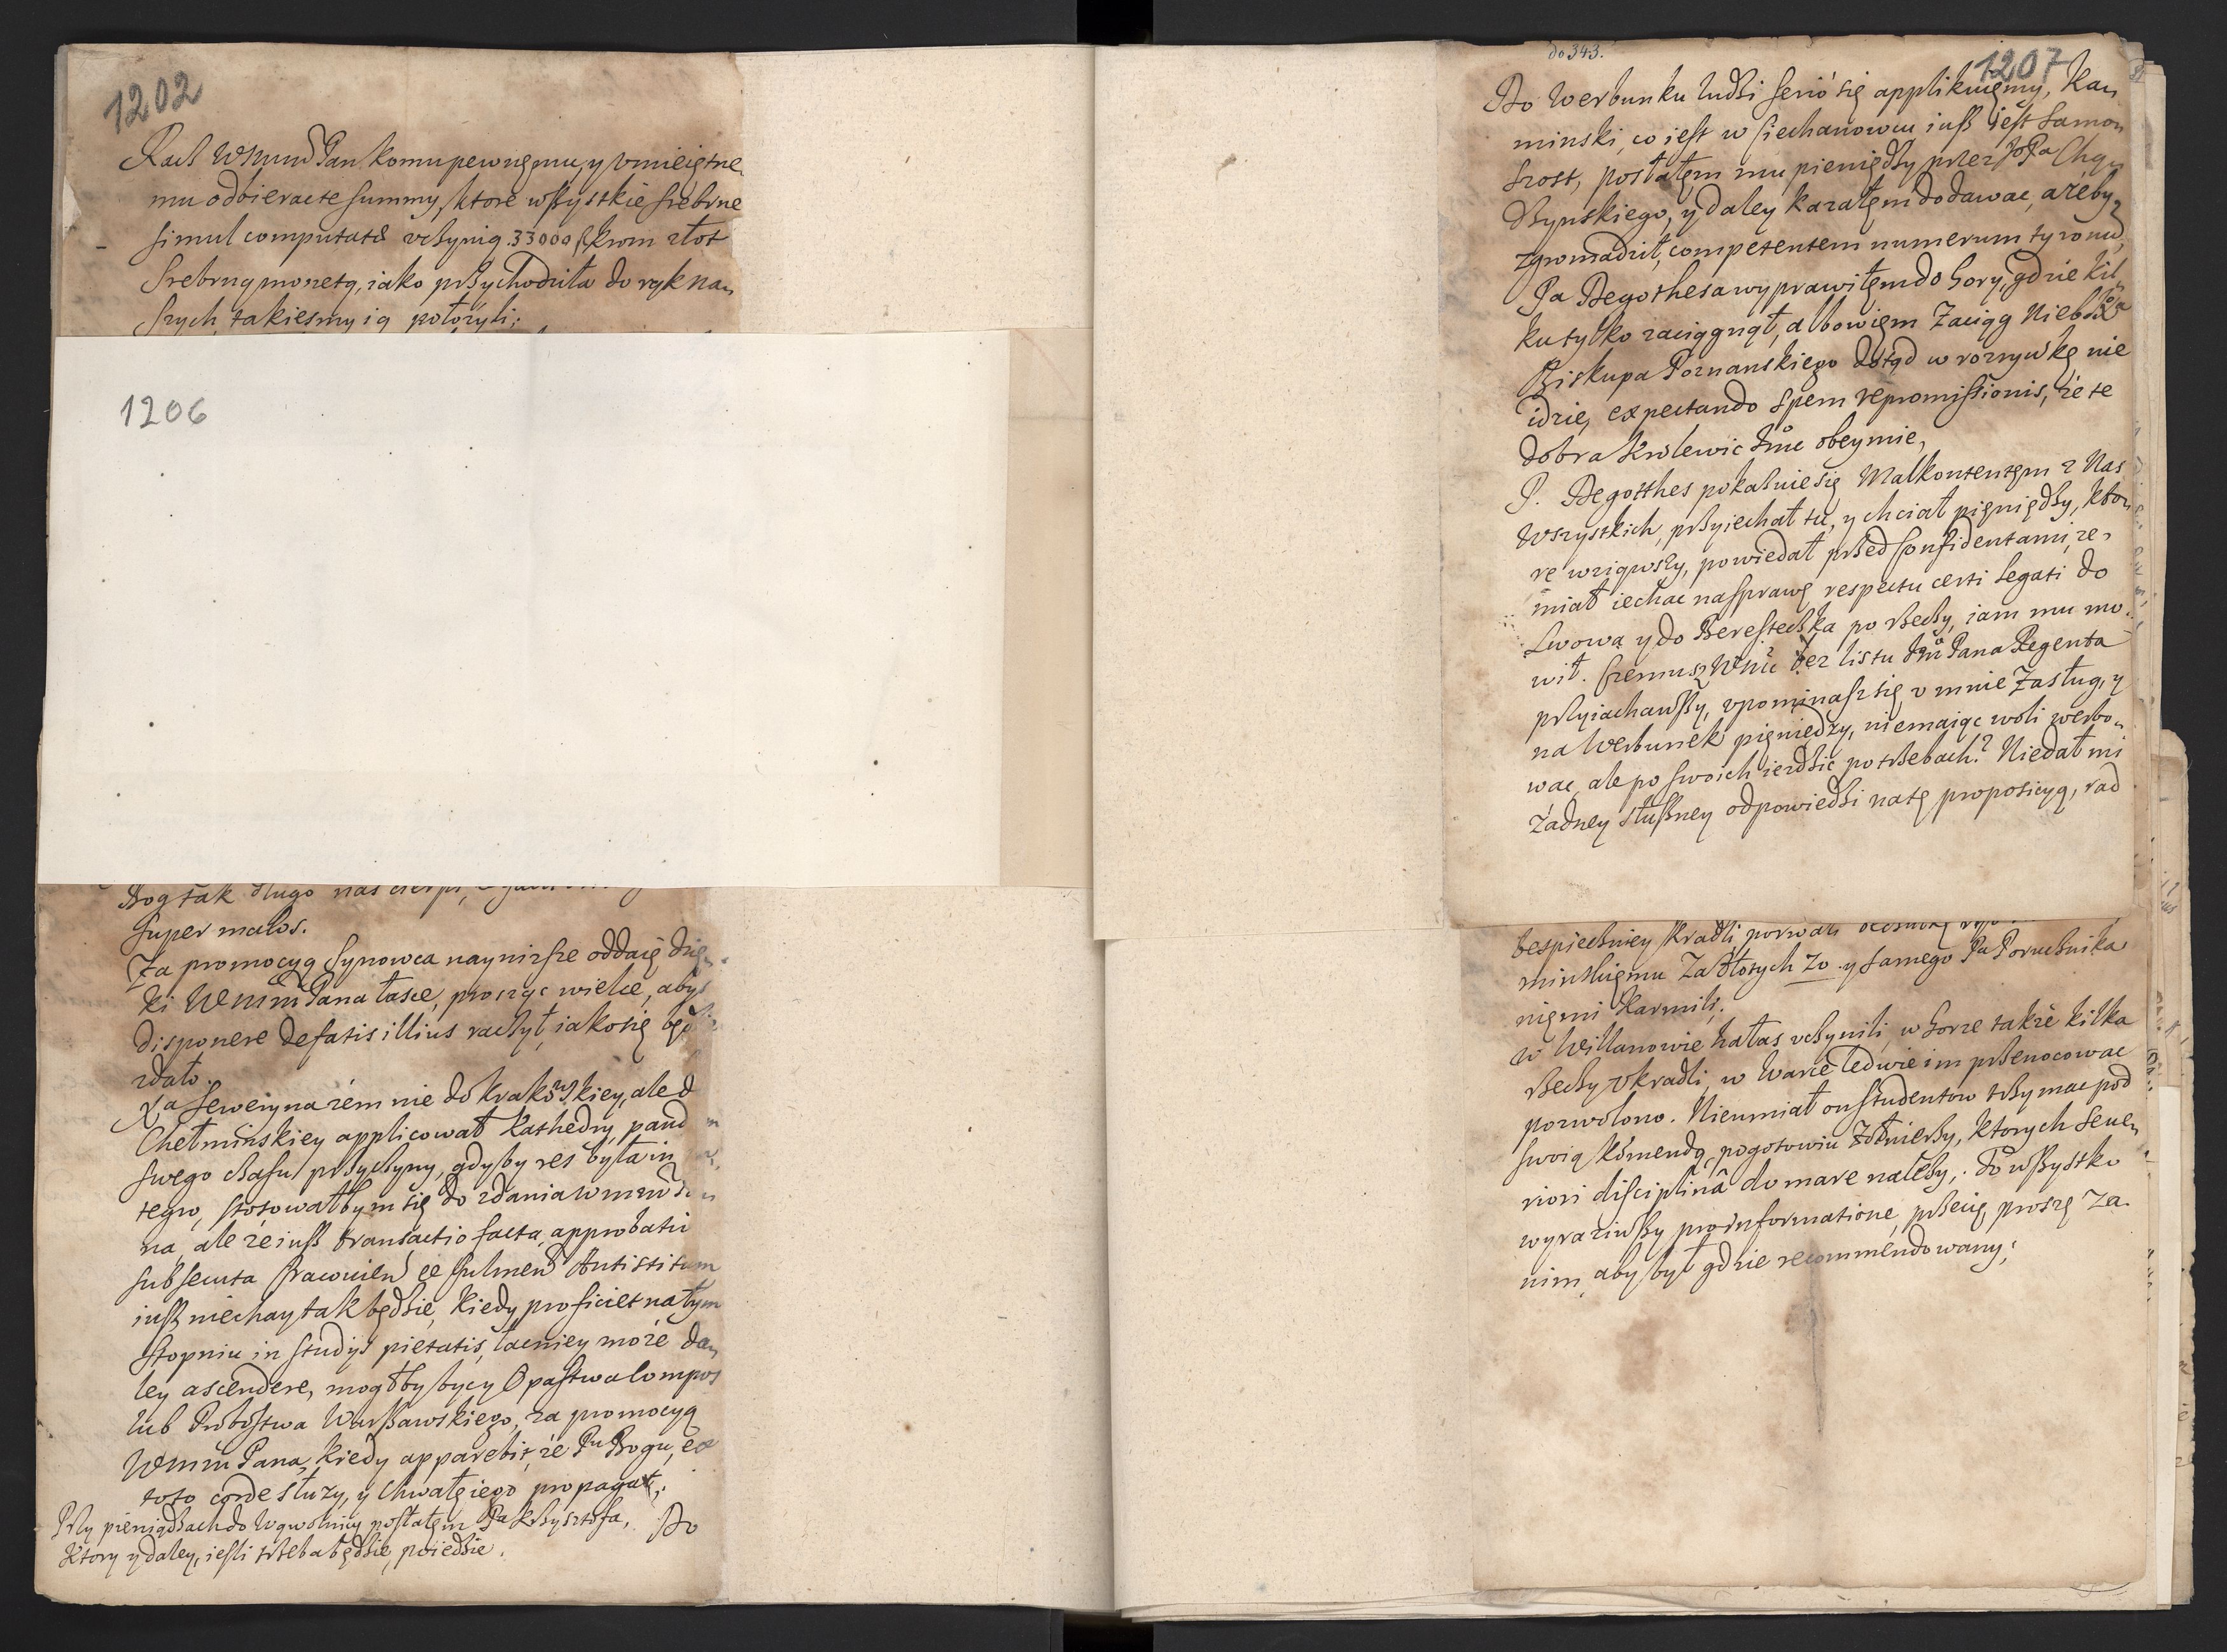 1202
Racz WMM Pan komu pewnęmu, y vmieiętne
mu odbierac te summy, ktore wszystkie srebrne
simul computatis vczynią 33000
srebrną monetą, iako przychodziła do rąk na„
szych, takiesmy ią połozyli;
1206
Bog tak długo nas cierpi,
super malos.
Za promocyą Synowca nayniższe oddaię dzię„
ki WMM Pana łasce, prosząc wielce, abyś
disponere de fatis illius raczył, iako się bę
zdało.
Xa Seweryna żem nie do krakowskiey, ale d
Chełminskiey applicował kathedry, pand
swego czasu przyczyny, gdyby res była in
tegro, stosowałbym się do zdania WMM
na, ale ze iusz transactio facta, approbatio
subsecuta Antistitum
iusz niechay tak będzie, kiedy proficiet na tym
stopniu in studys pietatis, łacniey może da„
ley ascendere, mogłby byc y Opastwa compos
lub Probostwa Warszawskiego, za promocyą
WMM Pana, kiedy apparebit, że Pu Bogu, ex
toto corde służy, y chwałę iego propagat;
Przy pieniądzach do Wąwolnicy posłałęm Pa Krzysztofa, Do
ktory y daley, iesli trzeba będzie, poiedzie.
do 343.
1207
Do Werbunku ludzi serio się applikuięmy, Ka„
minski, co iest w Ciechanowcu iusz iest samo„
szost, posłałęm mu pieniędzy przez JoPa Chą„
dzynskiego, y daley kazałęm dodawac, ażeby
zgromadził, competentem numerum tyronu,
Pa Degothesa wyprawiłęm do Gory, gdzie kil„
ku tylko zaciągnął, albowięm Zaciąg Niebo
Biskupa Poznanskiego dotąd w rozrywkę nie
idzie, expectando spem repromissionis, że te
dobra Krolewic Jmc obeymie,
P. Degotthes pokaznie się Malkontentęm z Nas
wszystkich, przyiechał tu, y chciał pięniędzy, kto„
re wziąwszy, powiedał przed confidentami, że
miał iechac na sprawę respectu certi legati do
Lwowa y do Beresteczka po rzeczy, iam mu mo„
wił. Czemusz WMc bez listu Jm Pana Regenta
przyiachawszy, vpominasz się v mnie Zasług, y
na Werbunek pięniedzy, niemaiąc woli werbo„
wac, ale po swoich iezdzic potrzebach? Niedał mi
żadney słuszney odpowiedzi na tę proposicyą, rad
bespieczniey kradli, porwali
minskięmu Za złotych 20. y samego Pa Porucznika
nięmi karmili;
w Willanowie hałas vczynili, w Gorze także kilka
rzeczy vkradli, w Warce ledwie im przenocowac
pozwolono. Nieumiał on studentow trzymac pod
swoią komendą, pogotowiu żołnierzy, ktorych seue„
riori disciplinâ domare należy; To wszystko
wyraziwszy pro informatione, przecię proszę za
nim, aby był gdzie recommendowany;